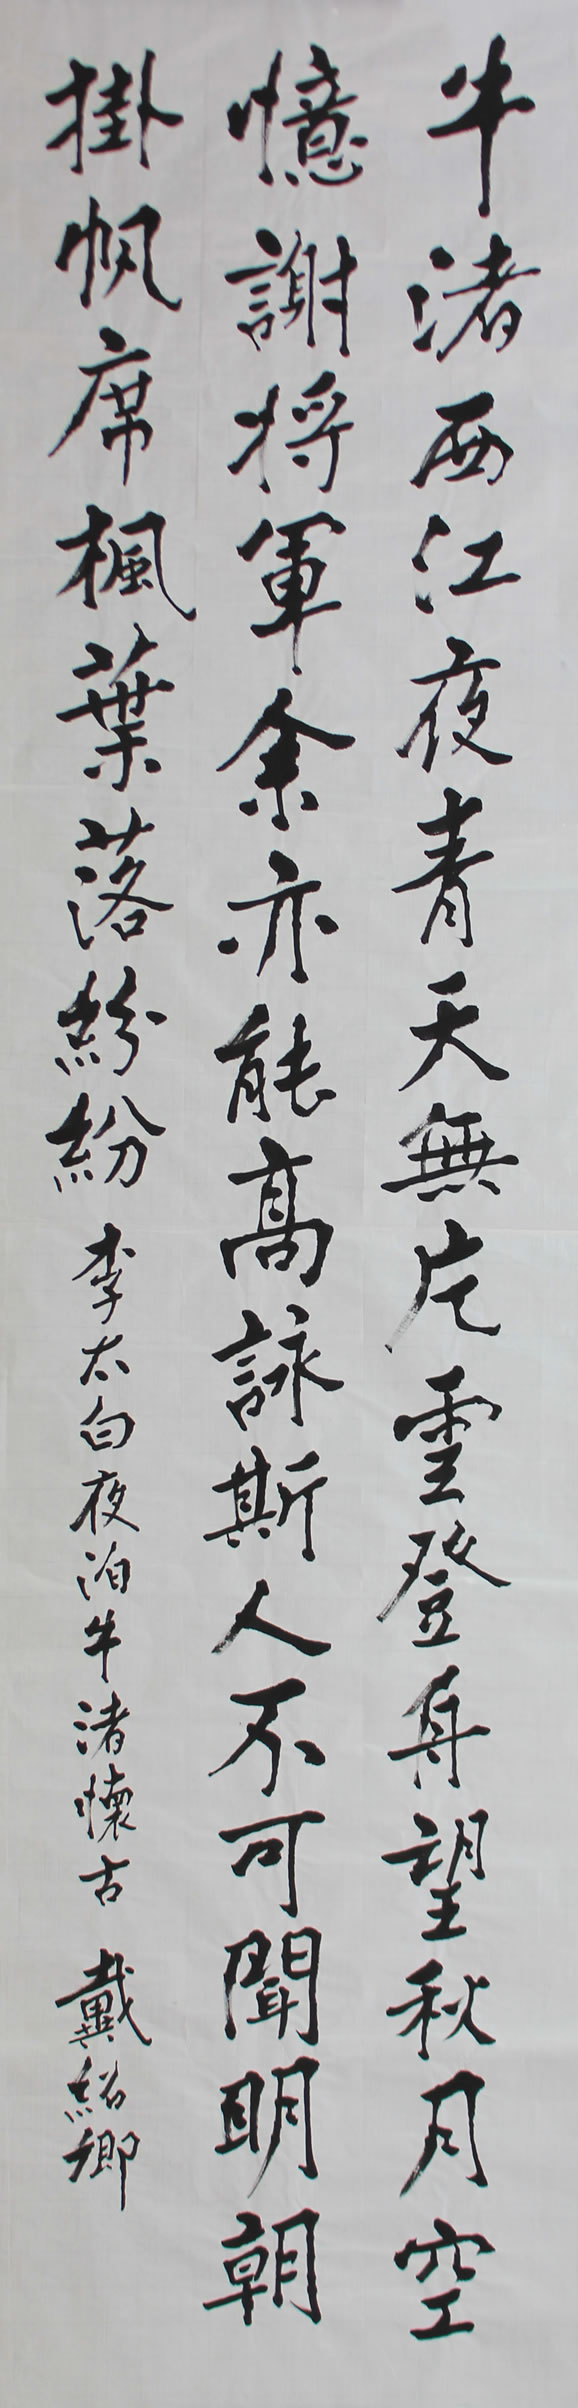 牛渚西江夜青天無片雲登舟望秋月空
憶謝将軍余亦能高詠斯人不可聞明朝
掛帆席楓葉落紛紛 李太白夜泊牛渚懷古 戴紹卿